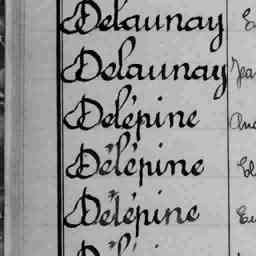 Delaunay
Delaunay Jean
Delépine
Délépine
Délépine